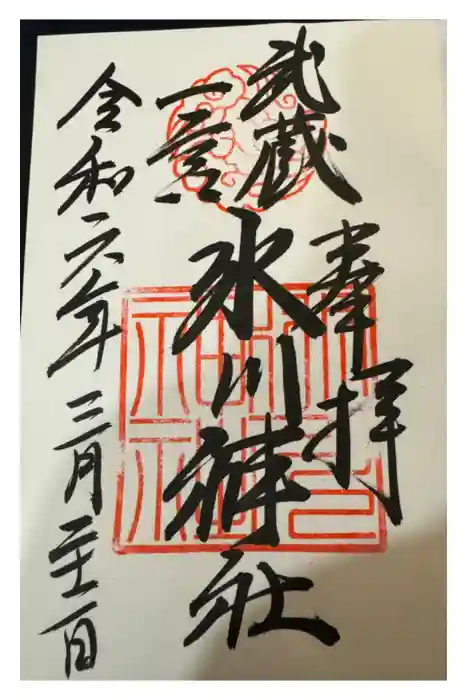 奉拝
武蔵
一宮
氷川神社
令和六年三月二十一日